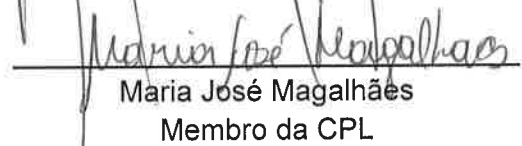 Maria José Magalhães
Maria José Magalhães
Membro da CPL